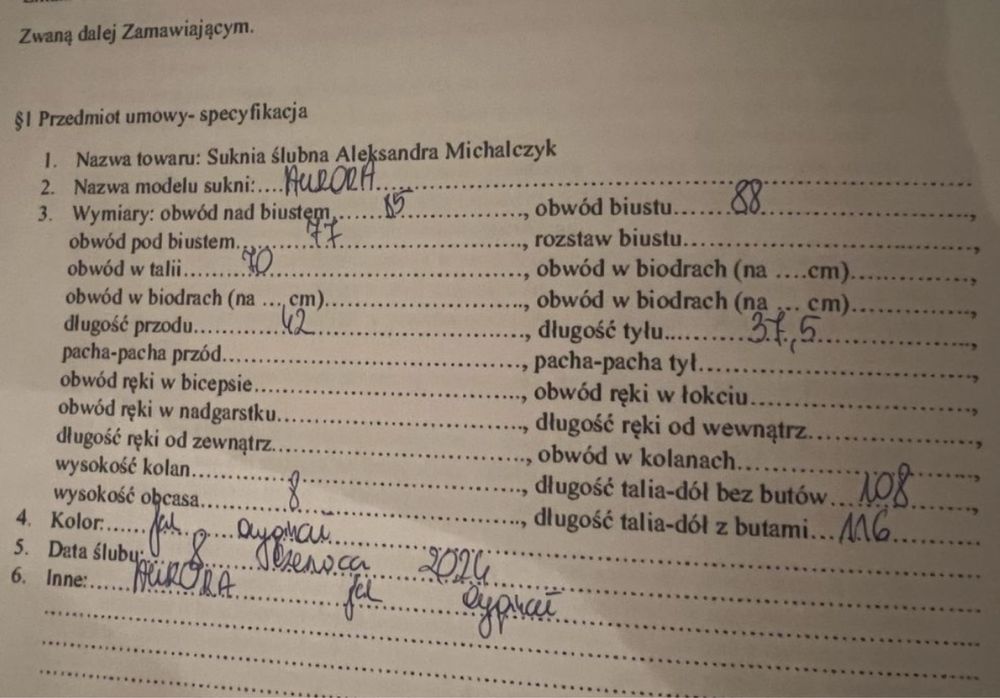 Zwaną dalej Zamawiającym.
§1 Przedmiot umowy- specyfikacja
1. Nazwa towaru: Suknia ślubna Aleksandra Michalczyk
2. Nazwa modelu sukni:....AURORA...
3. Wymiary: obwód nad biustem.......85..., obwód biustu.......88...,
obwód pod biustem..........77..., rozstaw biustu...,
obwód w talii........70..., obwód w biodrach (na ....cm)...,
obwód w biodrach (na ... cm)..., obwód w biodrach (na ... cm)...,
długość przodu..........42..., długość tyłu..........37,5...,
pacha-pacha przód..., pacha-pacha tył...,
obwód ręki w bicepsie..., obwód ręki w łokciu...,
obwód ręki w nadgarstku..., długość ręki od wewnątrz...,
długość ręki od zewnątrz..., obwód w kolanach...,
wysokość kolan..., długość talia-dół bez butów...108...,
wysokość obcasa..........8..., długość talia-dół z butami...116...,
4. Kolor:......jak oryginał...
5. Data ślubu:....8 czerwca 2024...
6. Inne:......AURORA jak oryginał...